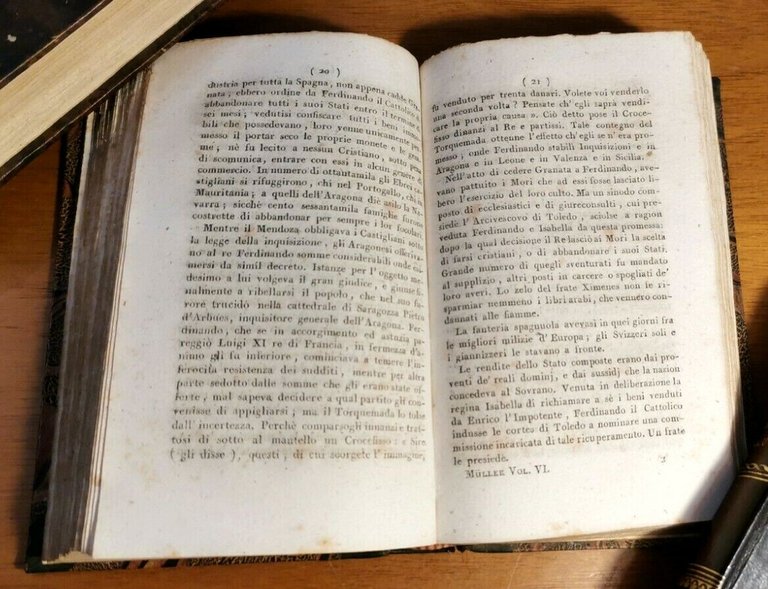 ( 20 )
dustria per tutta la Spagna, non appena cadde Gra-
nata; ebbero ordine da Ferdinando il Cattolico di
abbandonare tutti i suoi Stati entro il termine di
sei mesi; vedutisi confiscare tutti i beni immo-
bili che possedevano, loro venne unicamente per-
messo il portar seco le proprie monete e le gem-
me; nè fu lecito a nessun Cristiano, sotto pena
di scomunica, entrare con essi in alcun genere di
commercio. In numero di ottantamila gli Ebrei ca-
stigliani si rifuggirono, chi nel Portogallo, chi nella
Mauritania; a quelli dell'Aragona diè asilo la Na-
varra; sicchè cento sessantamila famiglie furono
costrette di abbandonar per sempre i lor focolari.
Mentre il Mendoza obbligava i Castigliani sotto
la legge della inquisizione, gli Aragonesi offriro-
no al re Ferdinando somme considerabili onde esi-
mersi da simil decreto. Istanze per l'oggetto me-
desimo a lui volgeva il gran giudice, e giunse fi-
nalmente a ribellarsi il popolo, che nel suo fu-
rore trucidò nella cattedrale di Saragozza Pietro
d'Arbues, inquisitore generale dell'Aragona. Fer-
dinando, che se in accorgimento ed astuzia pa-
reggiò Luigi XI re di Francia, in fermezza d'a-
nimo gli fu inferiore, cominciava a temere l'in-
ferocita resistenza dei sudditi, mentre per altra
parte sedotto dalle somme che gli erano state of-
ferte, mal sapeva decidere a qual partito gli con-
venisse di appigliarsi; ma il Torquemada lo tolse
dall'incertezza. Perchè comparsogli innanzi e trat-
tosi di sotto al mantello un Crocefisso: « Sire
( gli disse ), questi, di cui scorgete l'immagine,
( 21 )
fu venduto per trenta danari. Volete voi venderlo
una seconda volta? Pensate ch'egli saprà vendi-
care la propria causa ». Ciò detto pose il Croce-
fisso dinanzi al Re e partissi. Tale contegno del
Torquemada ottenne l'effetto ch'egli se n'era pro-
messo; onde Ferdinando stabilì Inquisizioni e in
Aragona e in Leone e in Valenza e in Sicilia.
Nell'atto di cedere Granata a Ferdinando, a-
vean pattuito i Mori che ad essi fosse lasciato li-
bero l'esercizio del loro culto. Ma un sinodo com-
posto di ecclesiastici e di giureconsulti, cui pre-
siedè l'Arcivescovo di Toledo, sciolse a ragion
veduta Ferdinando e Isabella da questa promessa:
dopo la qual decisione il Re lasciò ai Mori la scelta
di farsi cristiani, o di abbandonare i suoi Stati.
Grande numero di quegli sventurati fu mandato
al supplizio, altri posti in carcere o spogliati de'
loro averi. Lo zelo del frate Ximenes non le ri-
sparmiar nemmeno i libri arabi, che vennero con-
dannati alle fiamme.
La fanteria spagnuola aversi in quei giorni fra
le migliori milizie d'Europa; gli Svizzeri soli e
i giannizzeri le stavano a fronte.
Le rendite dello Stato composte erano dai pro-
venti de' reali dominj, e dai sussidj che la nazion
concedeva al Sovrano. Venuta in deliberazione la
regina Isabella di richiamare a sè i beni venduti
da Enrico l'Impotente, Ferdinando il Cattolico
indusse le cortes di Toledo a nominare una com-
missione incaricata di tale ricuperamento. Un frate
le presiede.
MÜLLER VOL. VI.